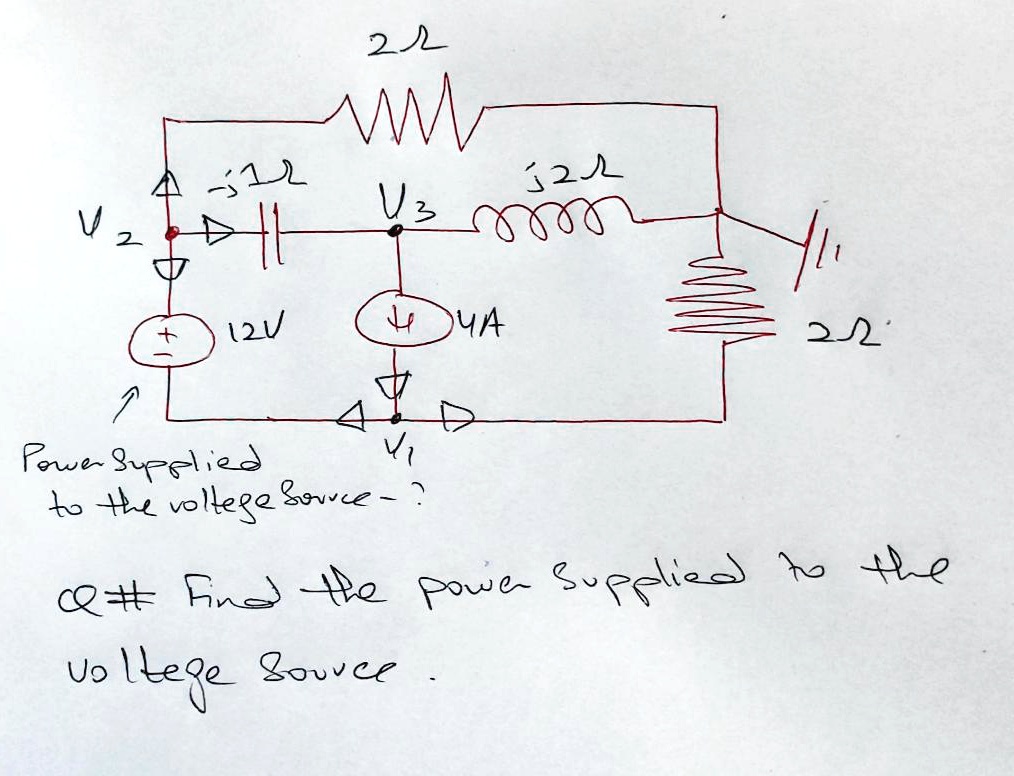 2Ω
-j1Ω
j2Ω
V2
V3
12V
4A
2Ω
V1
Power Supplied
to the voltege Source - ?
Q# Find the power Supplied to the
voltege Source.